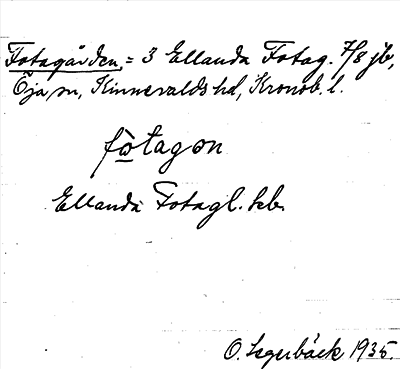 Fotagården = 3 Ellanda Fotag. 7/8 jb,
Öja sn, Kinnevalds hd, Kronob. l.
fòtagon
Ellanda Fotagl. hb.
O. Segerbäck 1935.